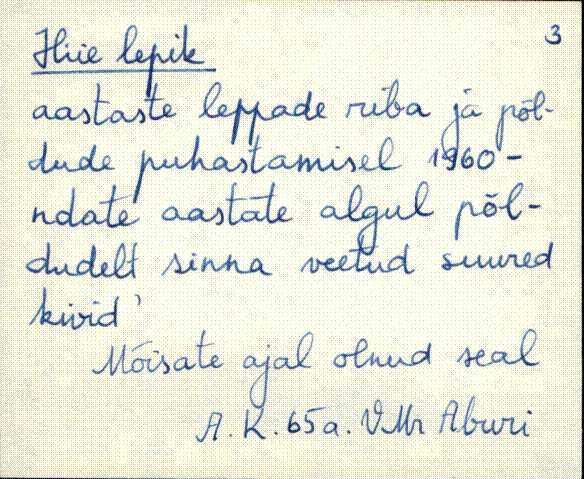 3
Hiie lepik
aastaste leppade riba ja põl-
dude puhastamisel 1960-
ndate aastate algul põl-
dudelt sinna veetud suured
kivid'
Mõisate ajal olnud seal
A. K. 65a. VMr Aburi